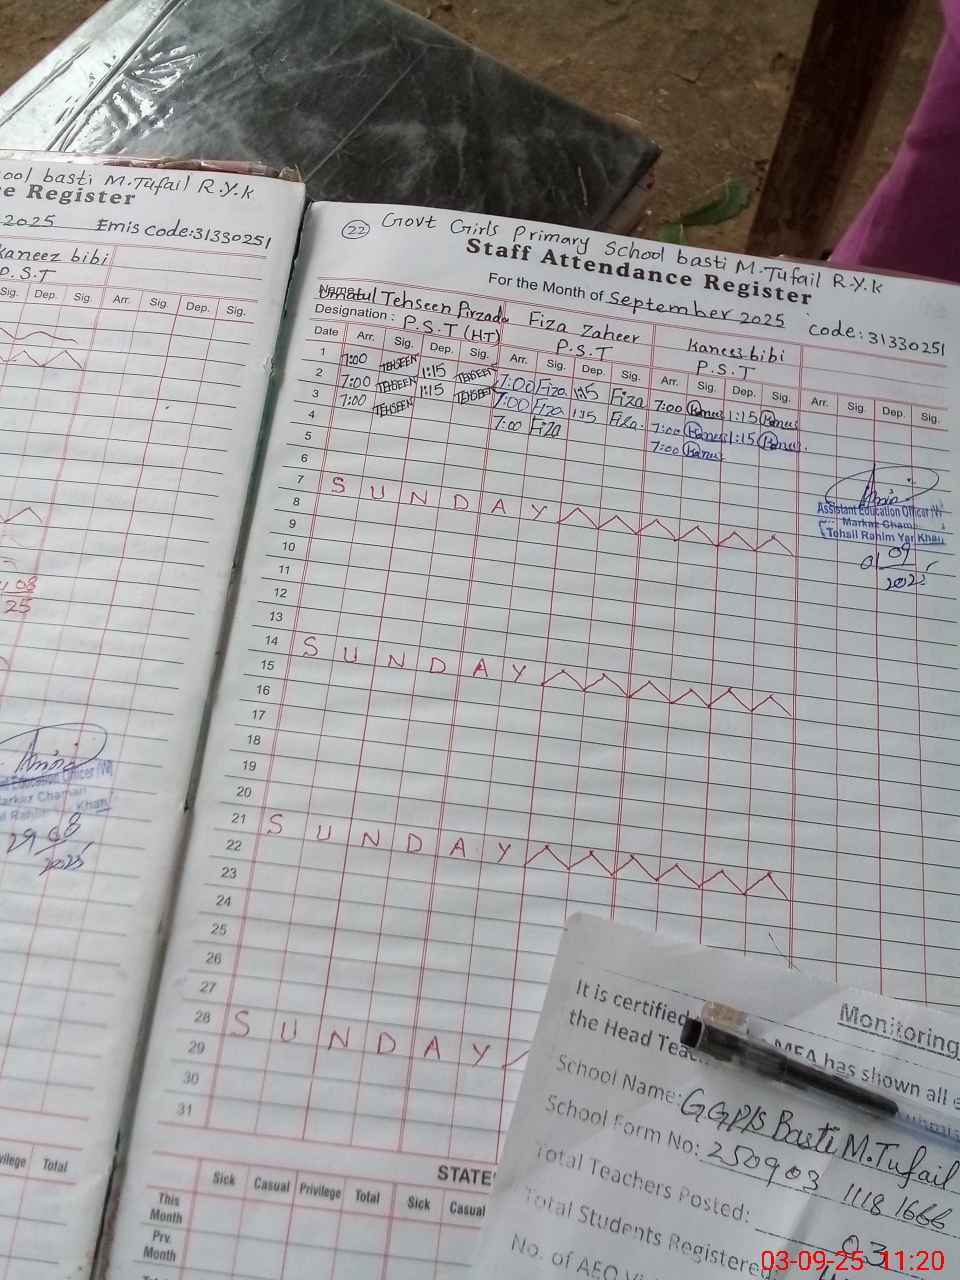 ool basti M.Tufail R.Y.K
ce Register
2025 Emis code:31330251
kaneez bibi
P.S.T
Sig. Dep. Sig. Arr. Sig. Dep. Sig.
08
25
Education Officer (W)
Markaz Chaman
Khan
29 08
2025
vilege Total
22 Govt Girls Primary School basti M.Tufail R.Y.K
Staff Attendance Register
For the Month of September 2025 code:31330251
Name Ummatul Tehseen Pirzada Fiza Zaheer Kaneez bibi
Designation : P.S.T (HT) P.S.T P.S.T
Date Arr. Sig. Dep. Sig. Arr. Sig. Dep. Sig. Arr. Sig. Dep. Sig. Arr. Sig. Dep. Sig.
1 7:00 TEHSEEN 1:15 TEHSEEN 7:00 Fiza 1:15 Fiza 7:00 Kanus 1:15 Kanus
2 7:00 TEHSEEN 1:15 TEHSEEN 7:00 Fiza 1:15 Fiza 7:00 Kanus 1:15 Kanus
3 7:00 TEHSEEN 7:00 Fiza 7:00 Kanus
4
5
6
7 SUNDAY
8
9
10
11
12
13
14 SUNDAY
15
16
17
18
19
20
21 SUNDAY
22
23
24
25
26
27
28 SUNDAY
29
30
31
Assistant Education Officer (W)
Markaz Chaman
Tehsil Rahim Yar Khan
01 09
2025
STATE
Sick Casual Privilege Total Sick Casual
This Month
Prv. Month
Monitoring
It is certified MEA has shown all e
the Head Teac
School Name: GGP/S Basti M.Tufail
School Form No: 250903 1118 1666
Total Teachers Posted: 03
Total Students Registered
No. of AEO Vi
03-09-25 11:20